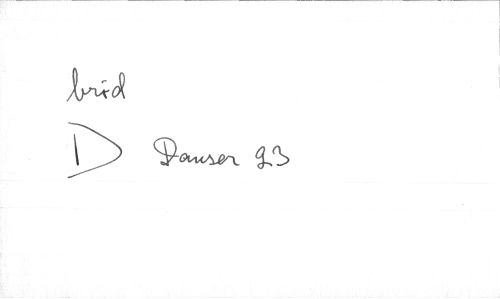 brid
D Danser 93